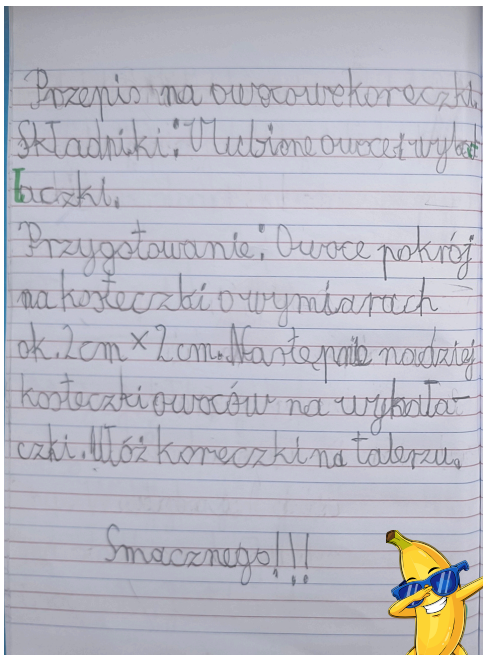 Przepis na owocowe koreczki.
Składniki: Ulubione owoce i wyka
łaczki.
Przygotowanie: Owoce pokrój
na kosteczki o wymiarach
ok. 2cm × 2cm. Następnie nadziej
kosteczki owoców na wykała-
czki. Ułóż koreczki na talerzu.
Smacznego!!!